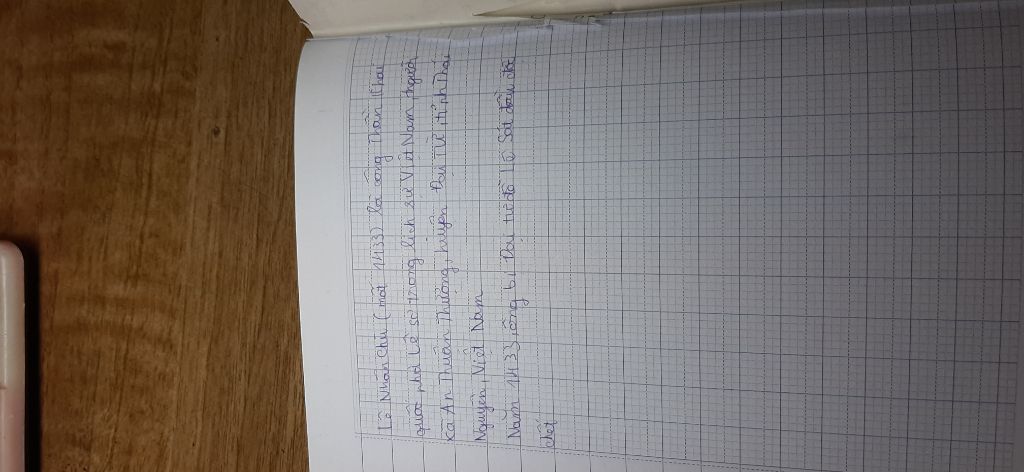 Lê Nhân Chú (mất 1433) là công thần khai
quốc nhà Lê sơ trong lịch sử Việt Nam, người
xã An Thuận Thượng, huyện Đại Từ, tỉnh Thái
Nguyên, Việt Nam
Năm 1433, ông bị Đại tư đồ Lê Sát đầu độc
chết